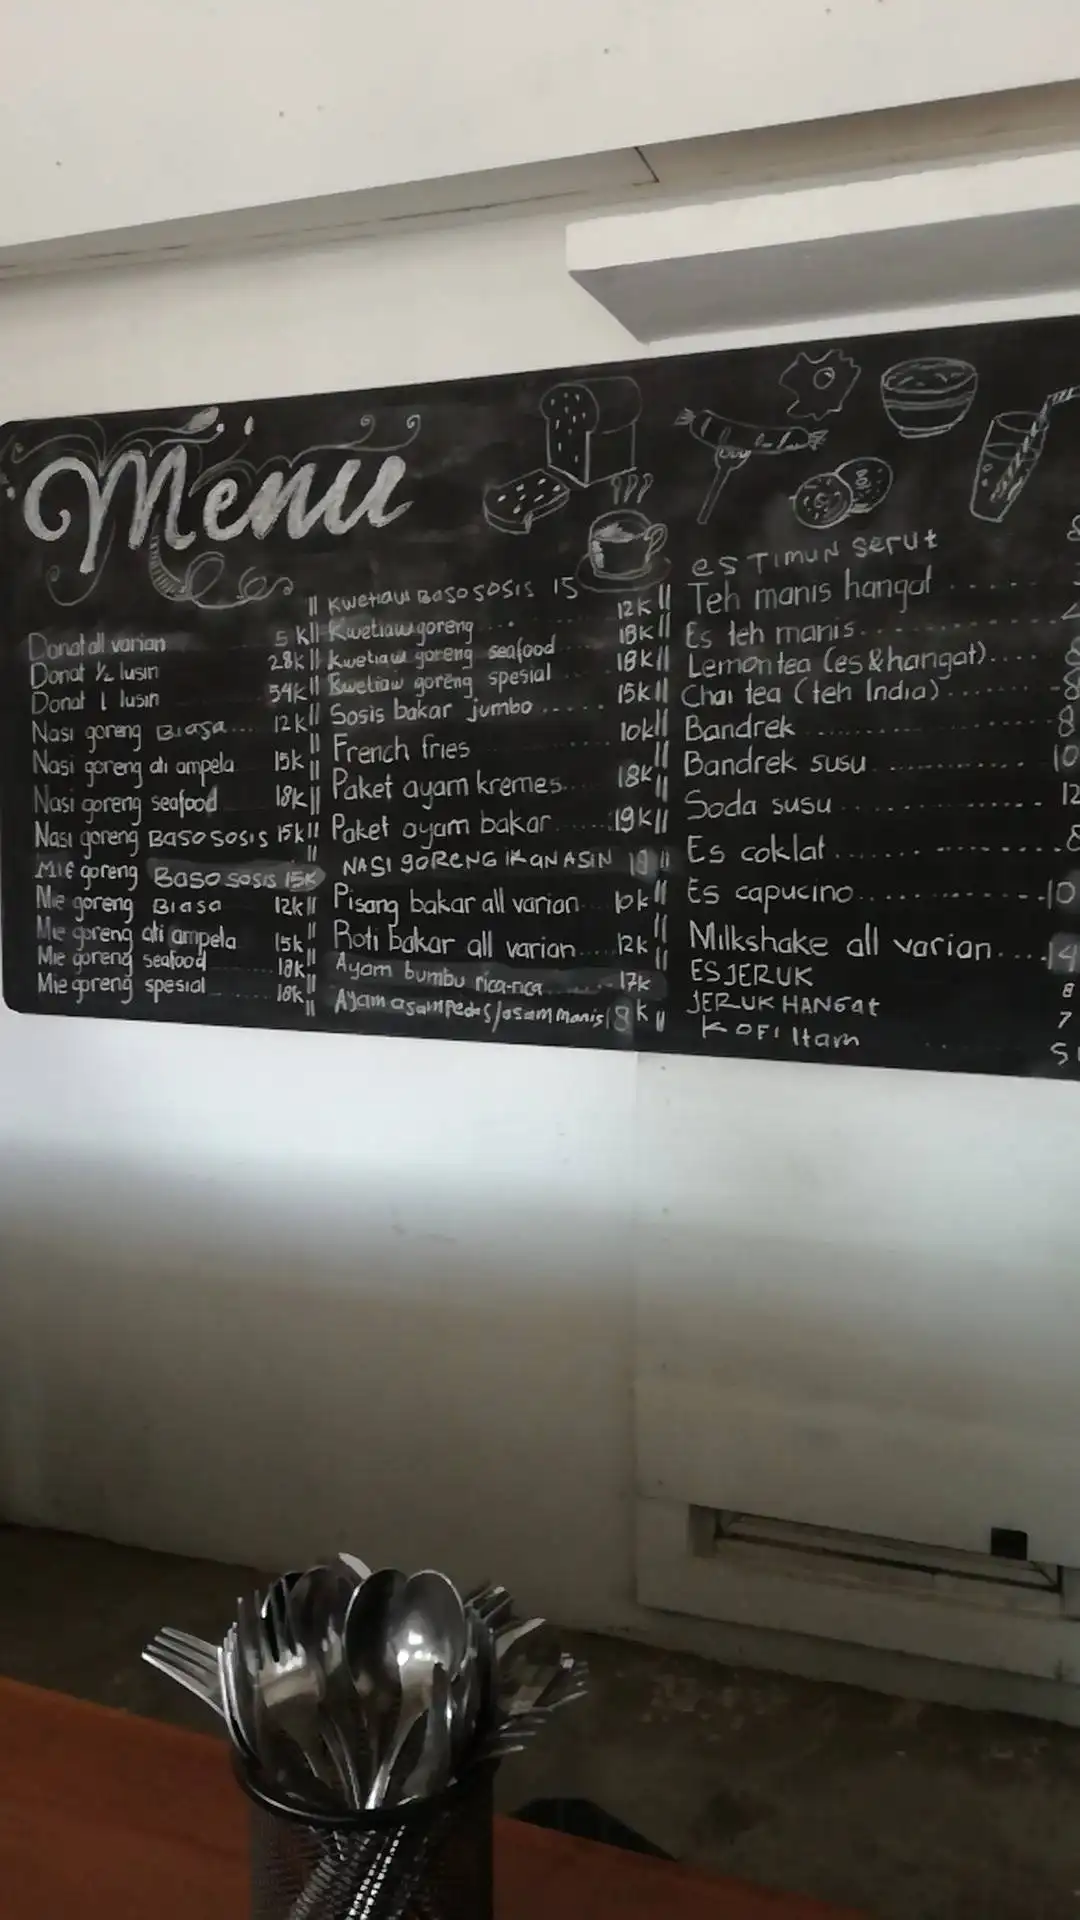 Menu
Donat all varian 5 k
Donat 1/2 lusin 28k
Donat 1 lusin 54k
Nasi goreng Biasa... 12k
Nasi goreng ati ampela 15k
Nasi goreng seafood 18k
Nasi goreng BASO SOSIS 15k
MIE goreng BASO SOSIS 15K
Mie goreng Biasa 12k
Mie goreng ati ampela 15k
Mie goreng seafood 18k
Mie goreng spesial 18k
Kwetiau BASO SOSIS 15
Kwetiaw goreng.... 12k
kwetiaw goreng seafood 18k
Kwetiaw goreng spesial 18k
Sosis bakar jumbo...... 15k
French fries 10k
Paket ayam kremes.... 18k
Paket ayam bakar...... 19k
NASI GORENG IKAN ASIN
Pisang bakar all varian 10k
Roti bakar all varian.... 12k
Ayam bumbu rica-rica...... 17k
Ayam asam Pedas/asam manis 18k
es TIMUN serut
Teh manis hangat ....
Es teh manis...........
Lemon tea (es & hangat)....
Chai tea (teh India).......
Bandrek ............ 8
Bandrek susu ............ 10
Soda susu............ 12
Es coklat............
Es capucino............10
Milkshake all varian....14
ES JERUK 8
JERUK HANGAT 7
KOFI Itam